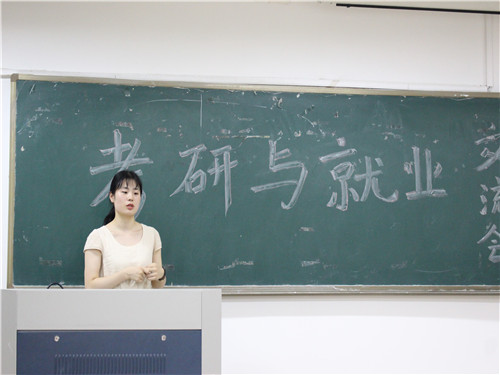 考研与就业
交流会